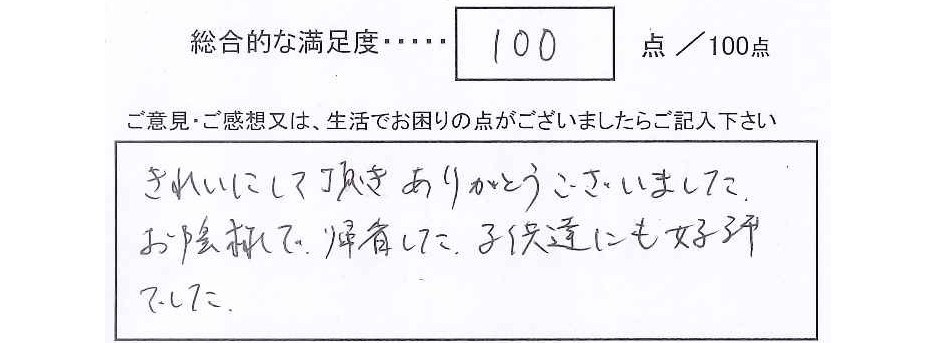 総合的な満足度・・・・・ 100 点 ／100点
ご意見・ご感想又は、生活でお困りの点がございましたらご記入下さい
きれいにして頂きありがとうございました.
お陰様で、帰省した、子供達にも好評
でした.